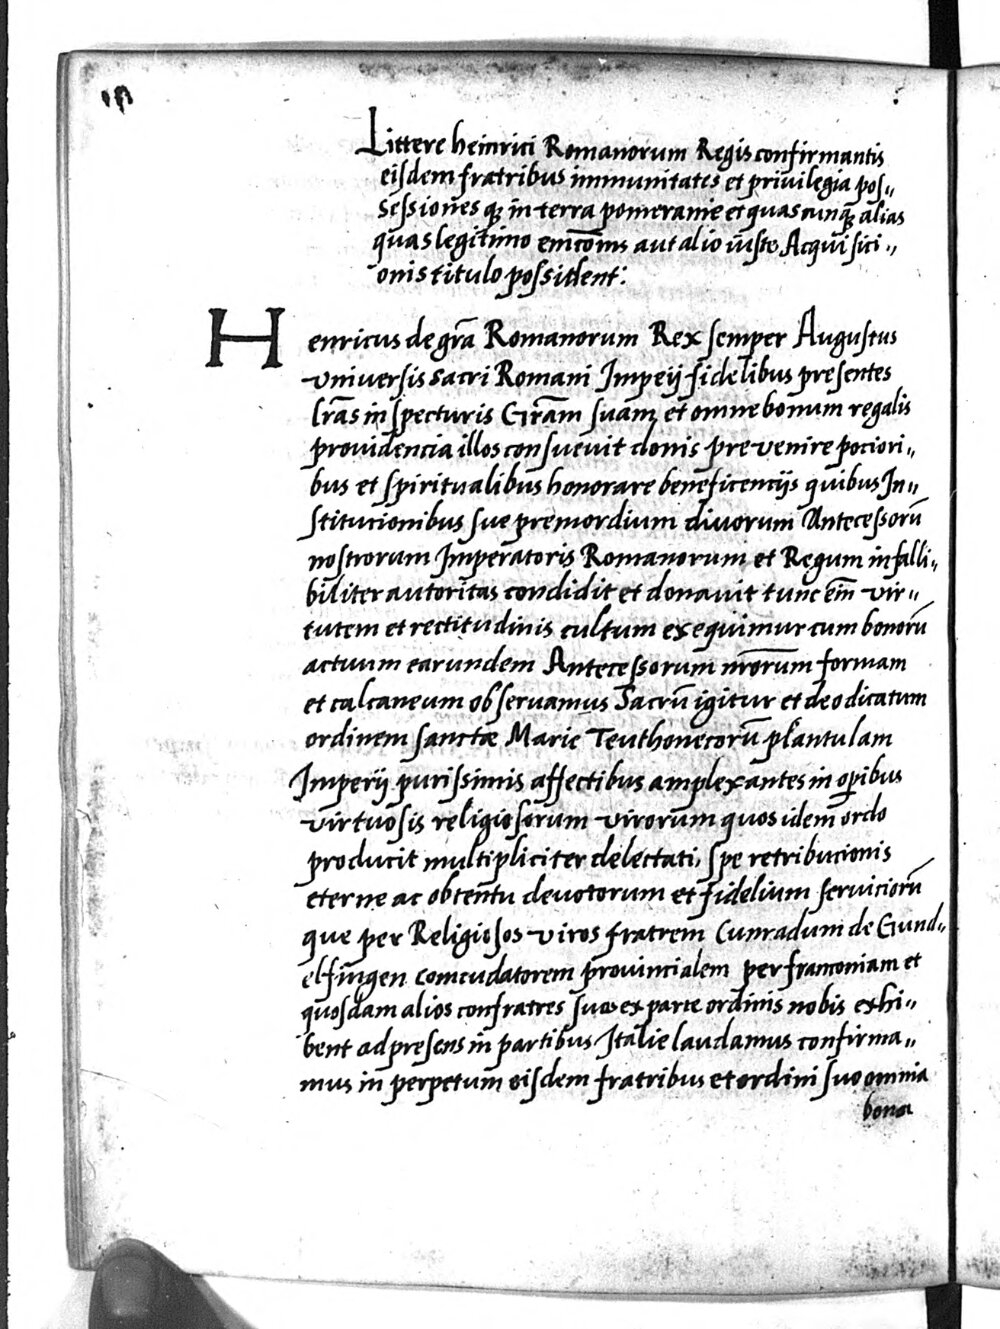 Littere heinrici Romanorum Regis confirmantis
eisdem fratribus immunitates et privilegia pos„
sessiones qꝫ in terra pomeranie et quascunqꝫ alias
quas legitimo aut alio iuste Acquisici„
onis titulo possident:
Henricus de gr̄a Romanorum Rex semper Augustus
universis sacri Romani Impeij fidelibus presentes
lr̄as inspecturis Gr̄am suam et omne bonum regalis
providencia illos consuevit donis prevenire pociori„
bus et spiritualibus honorare beneficencijs quibus In„
stitucionibus sue premordium divorum Antecessorū
nostrorum Imperatoris Romanorum et Regum infalli„
biliter autoritas condidit et donavit tunc em̄ vir„
tutem et rectitudinis cultum exequimur cum bonorū
actuum earundem Antecessorum nr̄orum formam
et calcaneum observamus Sacrū igitur et deo dicatum
ordinem sanctæ Marie Teuthonecorū plantulam
Imperij purissimis affectibus amplexantes in opibus
virtuosis religiosorum virorum quos idem ordo
producit multipliciter delectati, spe retribucionis
eterne ac obtentu devotorum et fidelium serviciorū
que per Religiosos viros fratrem Cunradum de Gund„
elfingen comendatorem provincialem per franconiam et
quosdam alios confratres suos ex parte ordinis nobis exhi„
bent ad presens in partibus Italie laudamus confirma„
mus in perpetum eisdem fratribus et ordini suo omnia
bona